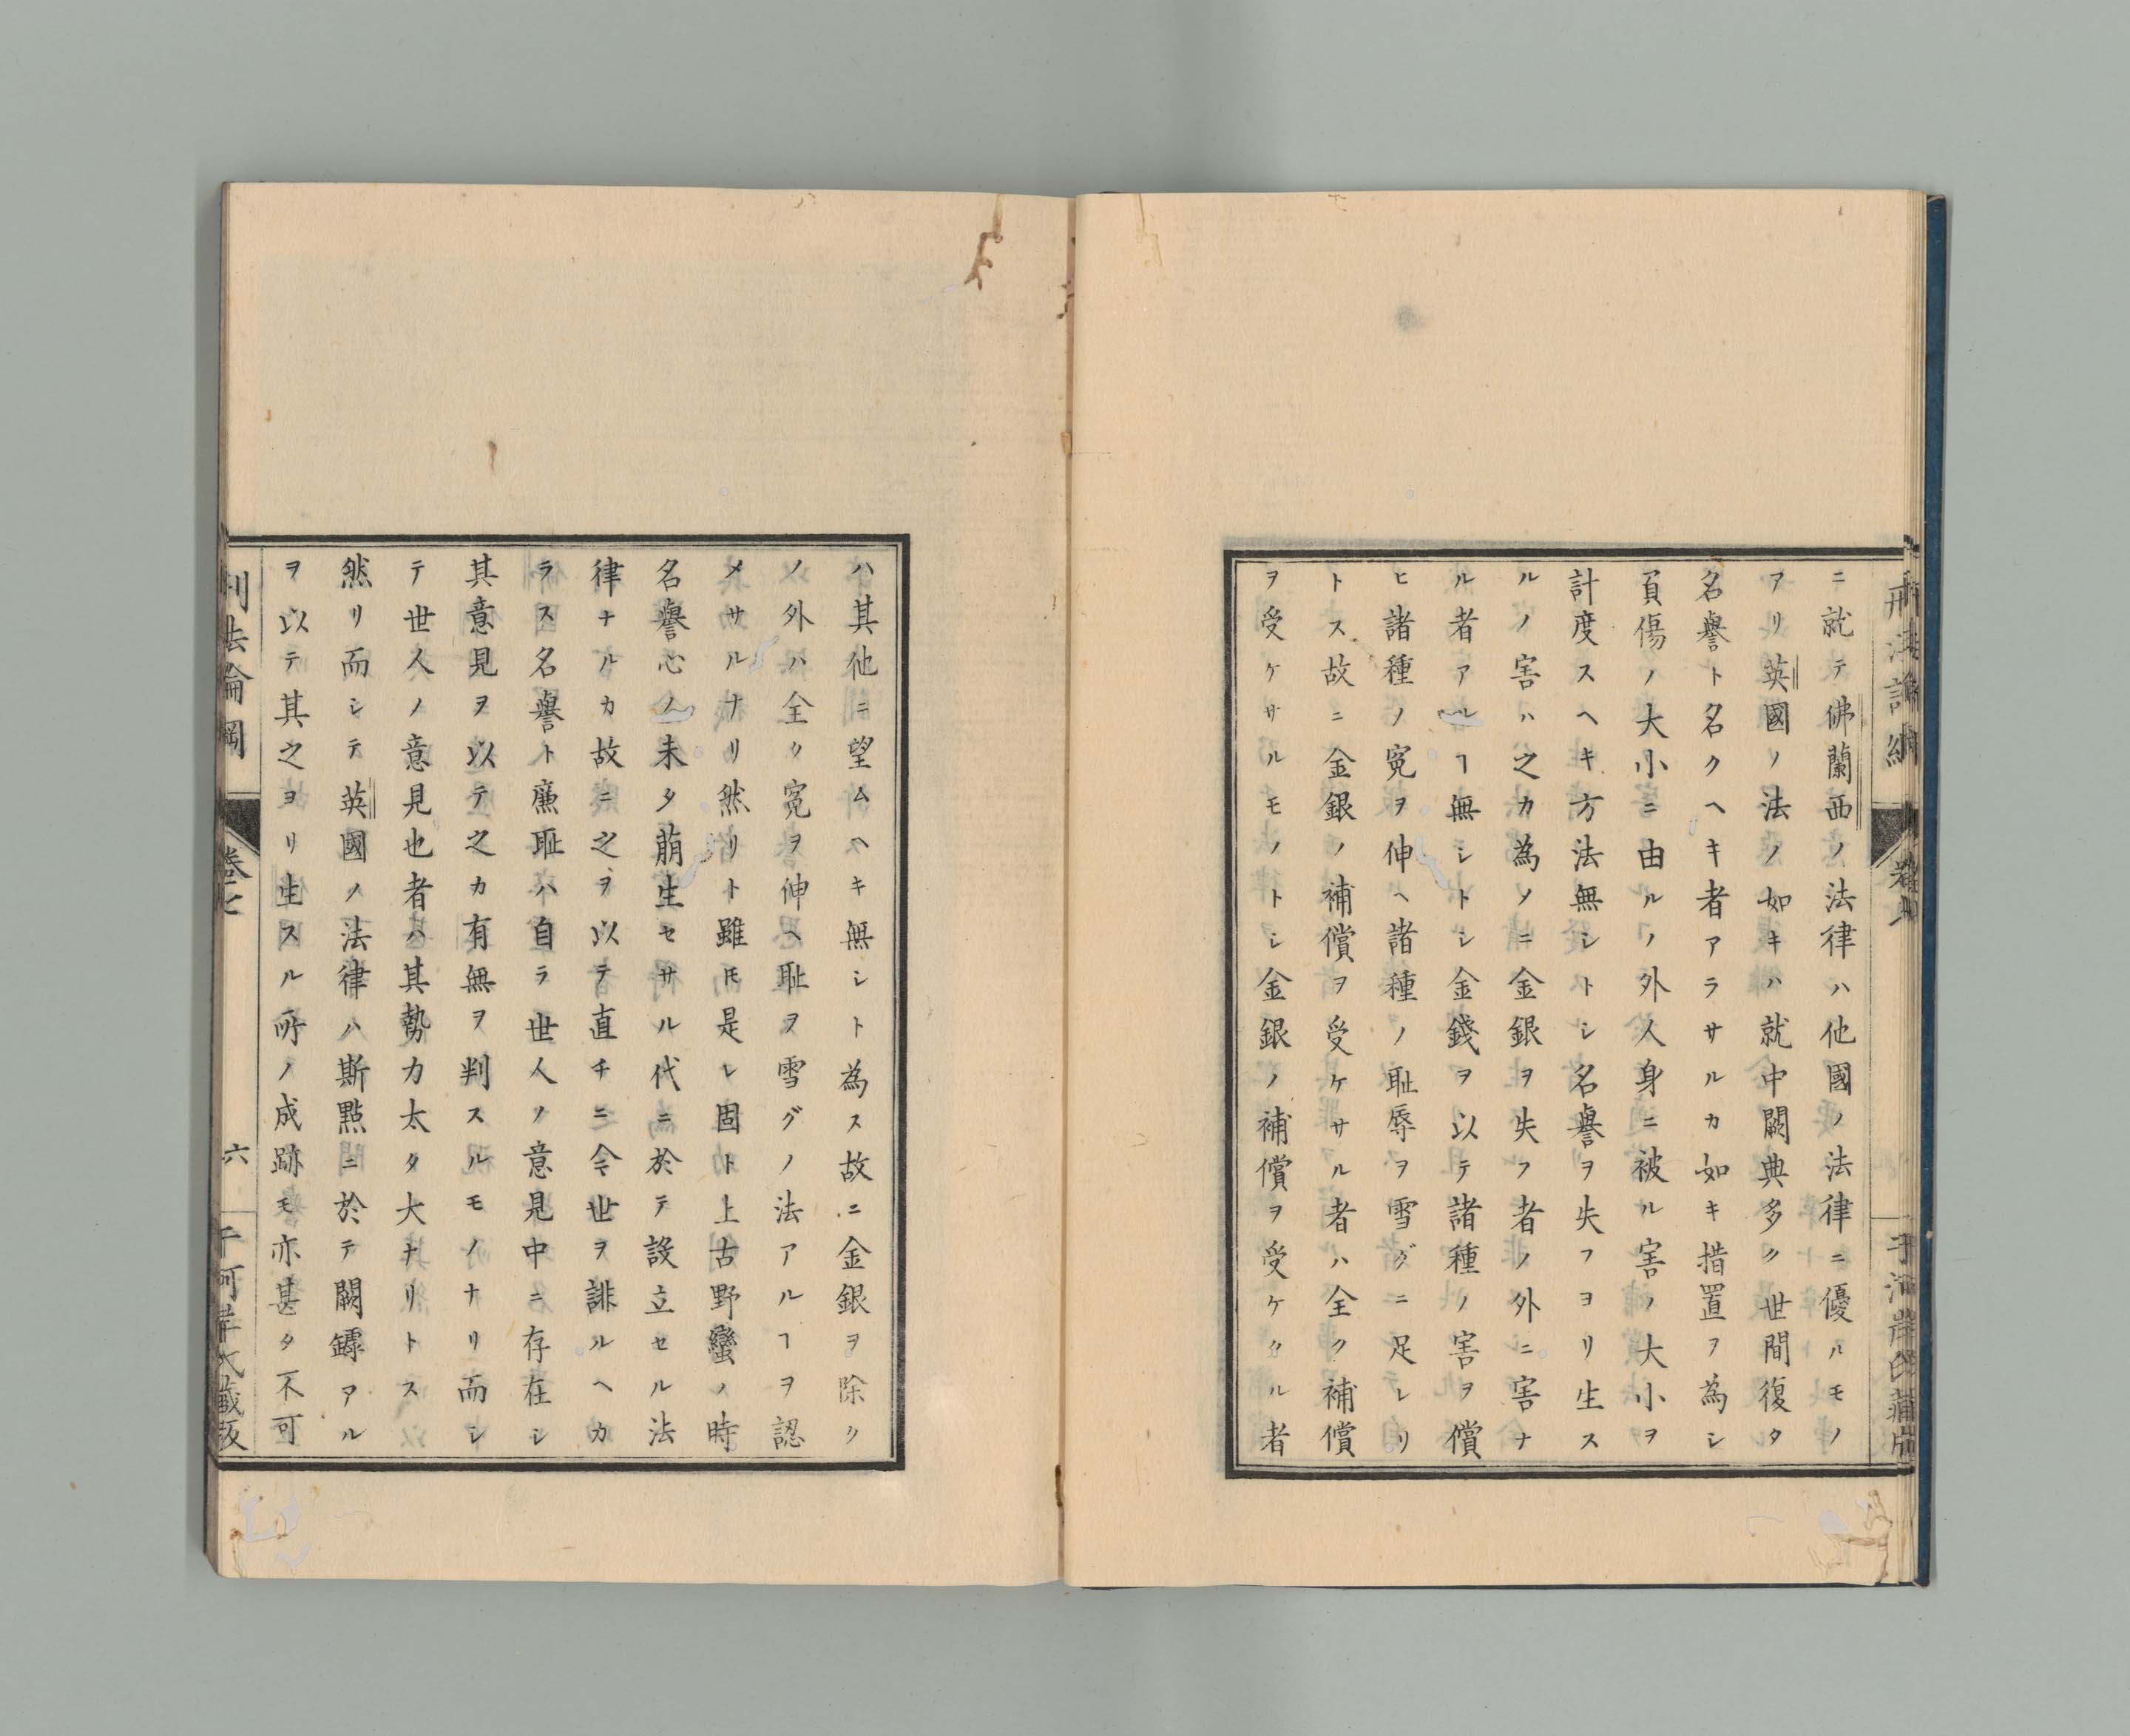 ニ就テ佛蘭西ノ法律ハ他國ノ法律ニ優ルモノ
アリ英國ノ法ノ如キハ就中闕典多ク世間復タ
名譽ト名クヘキ者アラサルカ如キ措置ヲ為シ
負傷ノ大小ニ由ルノ外人身ニ被ル害ノ大小ヲ
計度スヘキ方法無シトシ名譽ヲ失フヨリ生ス
ルノ害ハ之カ為メニ金銀ヲ失フ者ノ外ニ害ナ
ル者アルヿ無シトシ金錢ヲ以テ諸種ノ害ヲ償
ヒ諸種ノ寃ヲ伸ヘ諸種ノ耻辱ヲ雪グニ足レリ
トス故ニ金銀ノ補償ヲ受ケサル者ハ全ク補償
ヲ受ケサルモノトシ金銀ノ補償ヲ受ケタル者
ハ其他ニ望ムヘキ無シト為ス故ニ金銀ヲ除ク
ノ外ハ全ク寃ヲ伸ヘ耻ヲ雪グノ法アルヿヲ認
メサルナリ然リト雖𪜈是レ固ト上古野蠻ノ時
名譽心ノ未タ萠生セサル代ニ於テ設立セル法
律ナルカ故ニ之ヲ以テ直チニ今世ヲ誹ルヘカ
ラス名譽ト廉耻ハ自ラ世人ノ意見中ニ存在シ
其意見ヲ以テ之カ有無ヲ判スルモノナリ而シ
テ世人ノ意見也者ハ其勢力太タ大ナリトス
然リ而シテ英國ノ法律ハ斯點ニ於テ闕罅アル
ヲ以テ其之ヨリ生スル所ノ成跡モ亦甚タ不可
刑法論綱
卷七
六